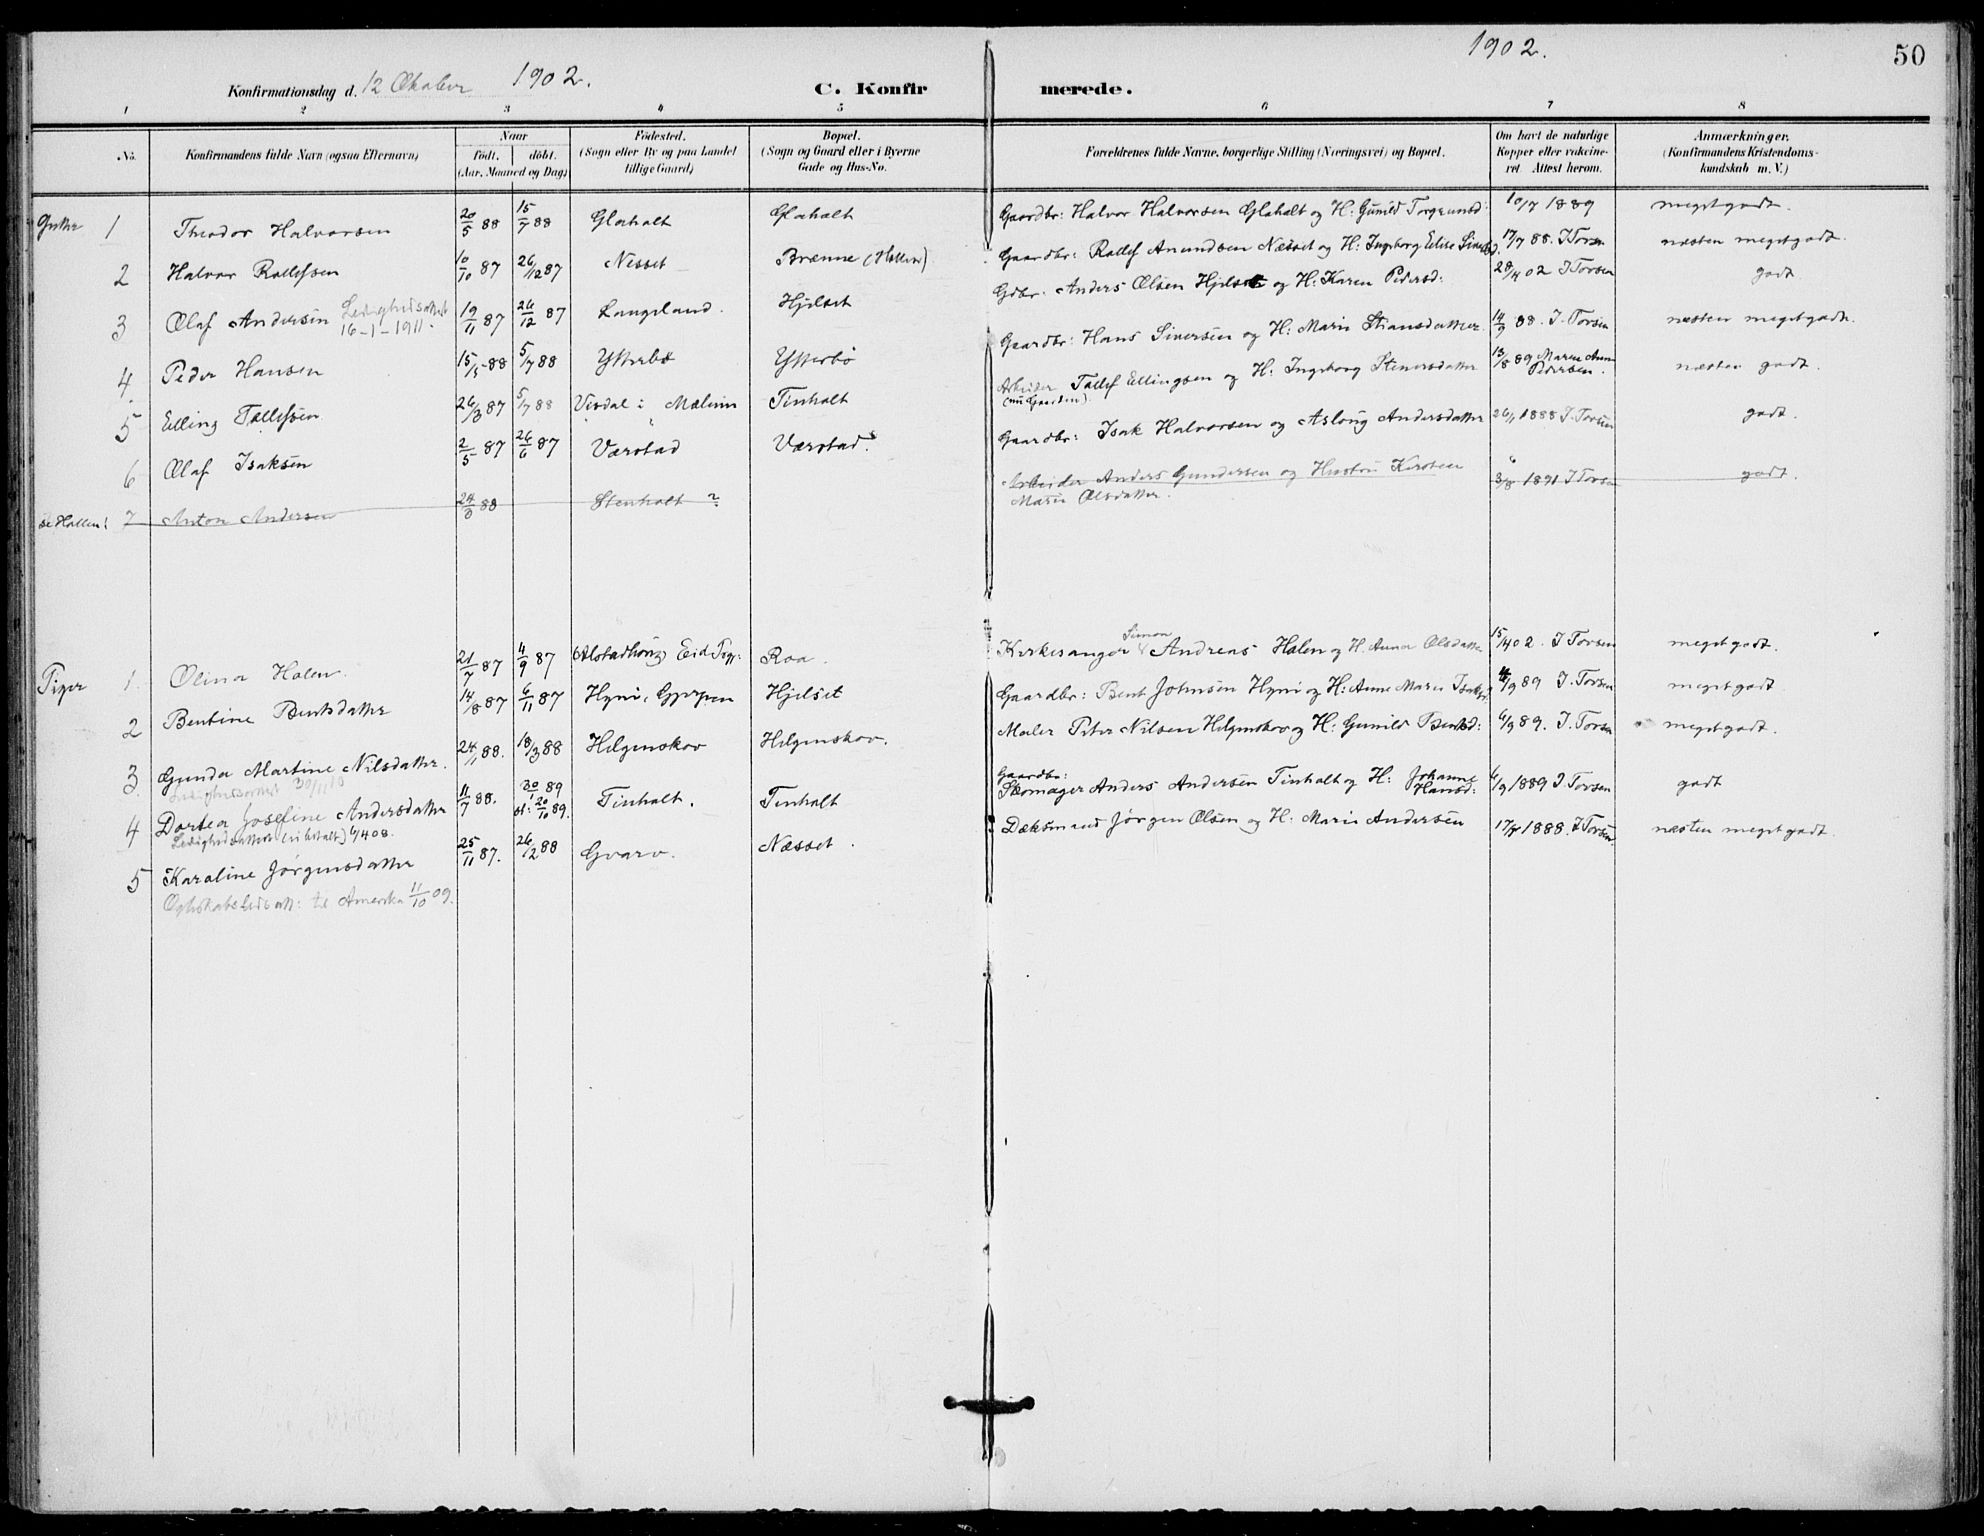 1902.
50
Konfirmationsdag d. 12 Oktober 1902.
C. Konfirmerede.
1 2 3 4 5 6 7 8
No. Konfirmandens fulde Navn (ogsaa Efternavn) Naar födt. döbt. (Aar, Maaned og Dag) Födested. (Sogn eller By og paa Landet tillige Gaard) Bopæl. (Sogn og Gaard eller i Byerne Gade og Hus-No. Forældrenes fulde Navne, borgerlige Stilling (Næringsvei) og Bopæl. Om havt de naturlige Kopper eller vakcineret. Attest herom. Anmærkninger. (Konfirmandens Kristendomskundskab m. V.)
Gutter 1 Theodor Halvorsen 20/5 88 15/7 88 Glaholt Glaholt Gaardbr: Halvor Halvorsen Glaholt og H: Gunild Torgrimsd: 10/7 1889 megetgodt.
2 Halvor Rollefsen 10/10 87 26/12 87 Nesset Brænne (Hollen) Gaardbr: Rollef Amundsen Næsset og H: Ingeborg Elise Siversd. 17/7 88. I Torsen næsten megetgodt.
3 Olaf Andersen Ledighedsattest 16-1-1911. 19/11 87 26/12 87 Langeland. Hjelset Gdbr. Anders Olsen Hjelset og H: Karen Pedersd: 28/4 02 I Torsen godt
4. Peder Hansen 15/5 88 5/7 88 Ytterbø Ytterbø Gaardbr: Hans Siversen og H: Marie Stiansdatter 14/9 88. I. Torsen næsten megetgodt.
5 Elling Tollefsen 26/3 87 5/7 88 Visdal i Mælum Tinholt Arbeider (nu Gaarden). Tollef Ellingsen og H: Ingeborg Stenersdatter 13/8 89 Maren Anne Pedersen. næsten godt.
6 Olaf Isaksen 2/5 87 26/6 87 Værstad Værstad. Gaardbr: Isak Halvorsen og Aslaug Andersdatter 26/1 1888 I. Torsen godt.
se Hollen! 7 Anton Andersen 24/8 88 Stenholt ? Arbeider Anders Gundersen og Hustru Kirsten Marie Olsdatter. 3/8 1891 I Torsen godt.
Piger 1. Olina Holen. 21/7 87 4/9 87 Eid Roa. Kirkesanger Simon Andreas Holen og H. Anna Olsdatter 15/4 02. I Torsen megetgodt.
2 Bentine Bentsdatter 14/8 87 6/11 87 Hyni, Gjerpen Hjelset Gaardbr: Bent Johnsen Hyni og H: Anne Marie Isaksd. 4/9 89 I. Torsen megetgodt.
3. Gunda Martine Nilsdatter. Ledighedsattest 30/11 10 24/1 88. 18/3 88 Helgenskov Helgenskov. Maler Peter Nilsen Helgenskov og H: Gunild Bentsd: 6/9 89. I. Torsen megetgodt.
4 Dortea Josefine Andersdatter Ledighedsattest (ei betalt) 6/4 08. 11/7 88. 30/1 89 st: 20/10 89. Tinholt. Tinholt Gaardbr: Skomager Anders Andersen Tinholt og H: Johanne Hansd: 6/9 1889 I. Torsen godt
5 Karoline Jørgensdatter 25/11 87. 26/2 88 Gvarv. Næsset. Dæksmand Jørgen Olsen og H: Marie Andersen 17/7 1888. I Torsen næsten megetgodt.
Ægteskabsledsatt: til Amerika 11/10 09.